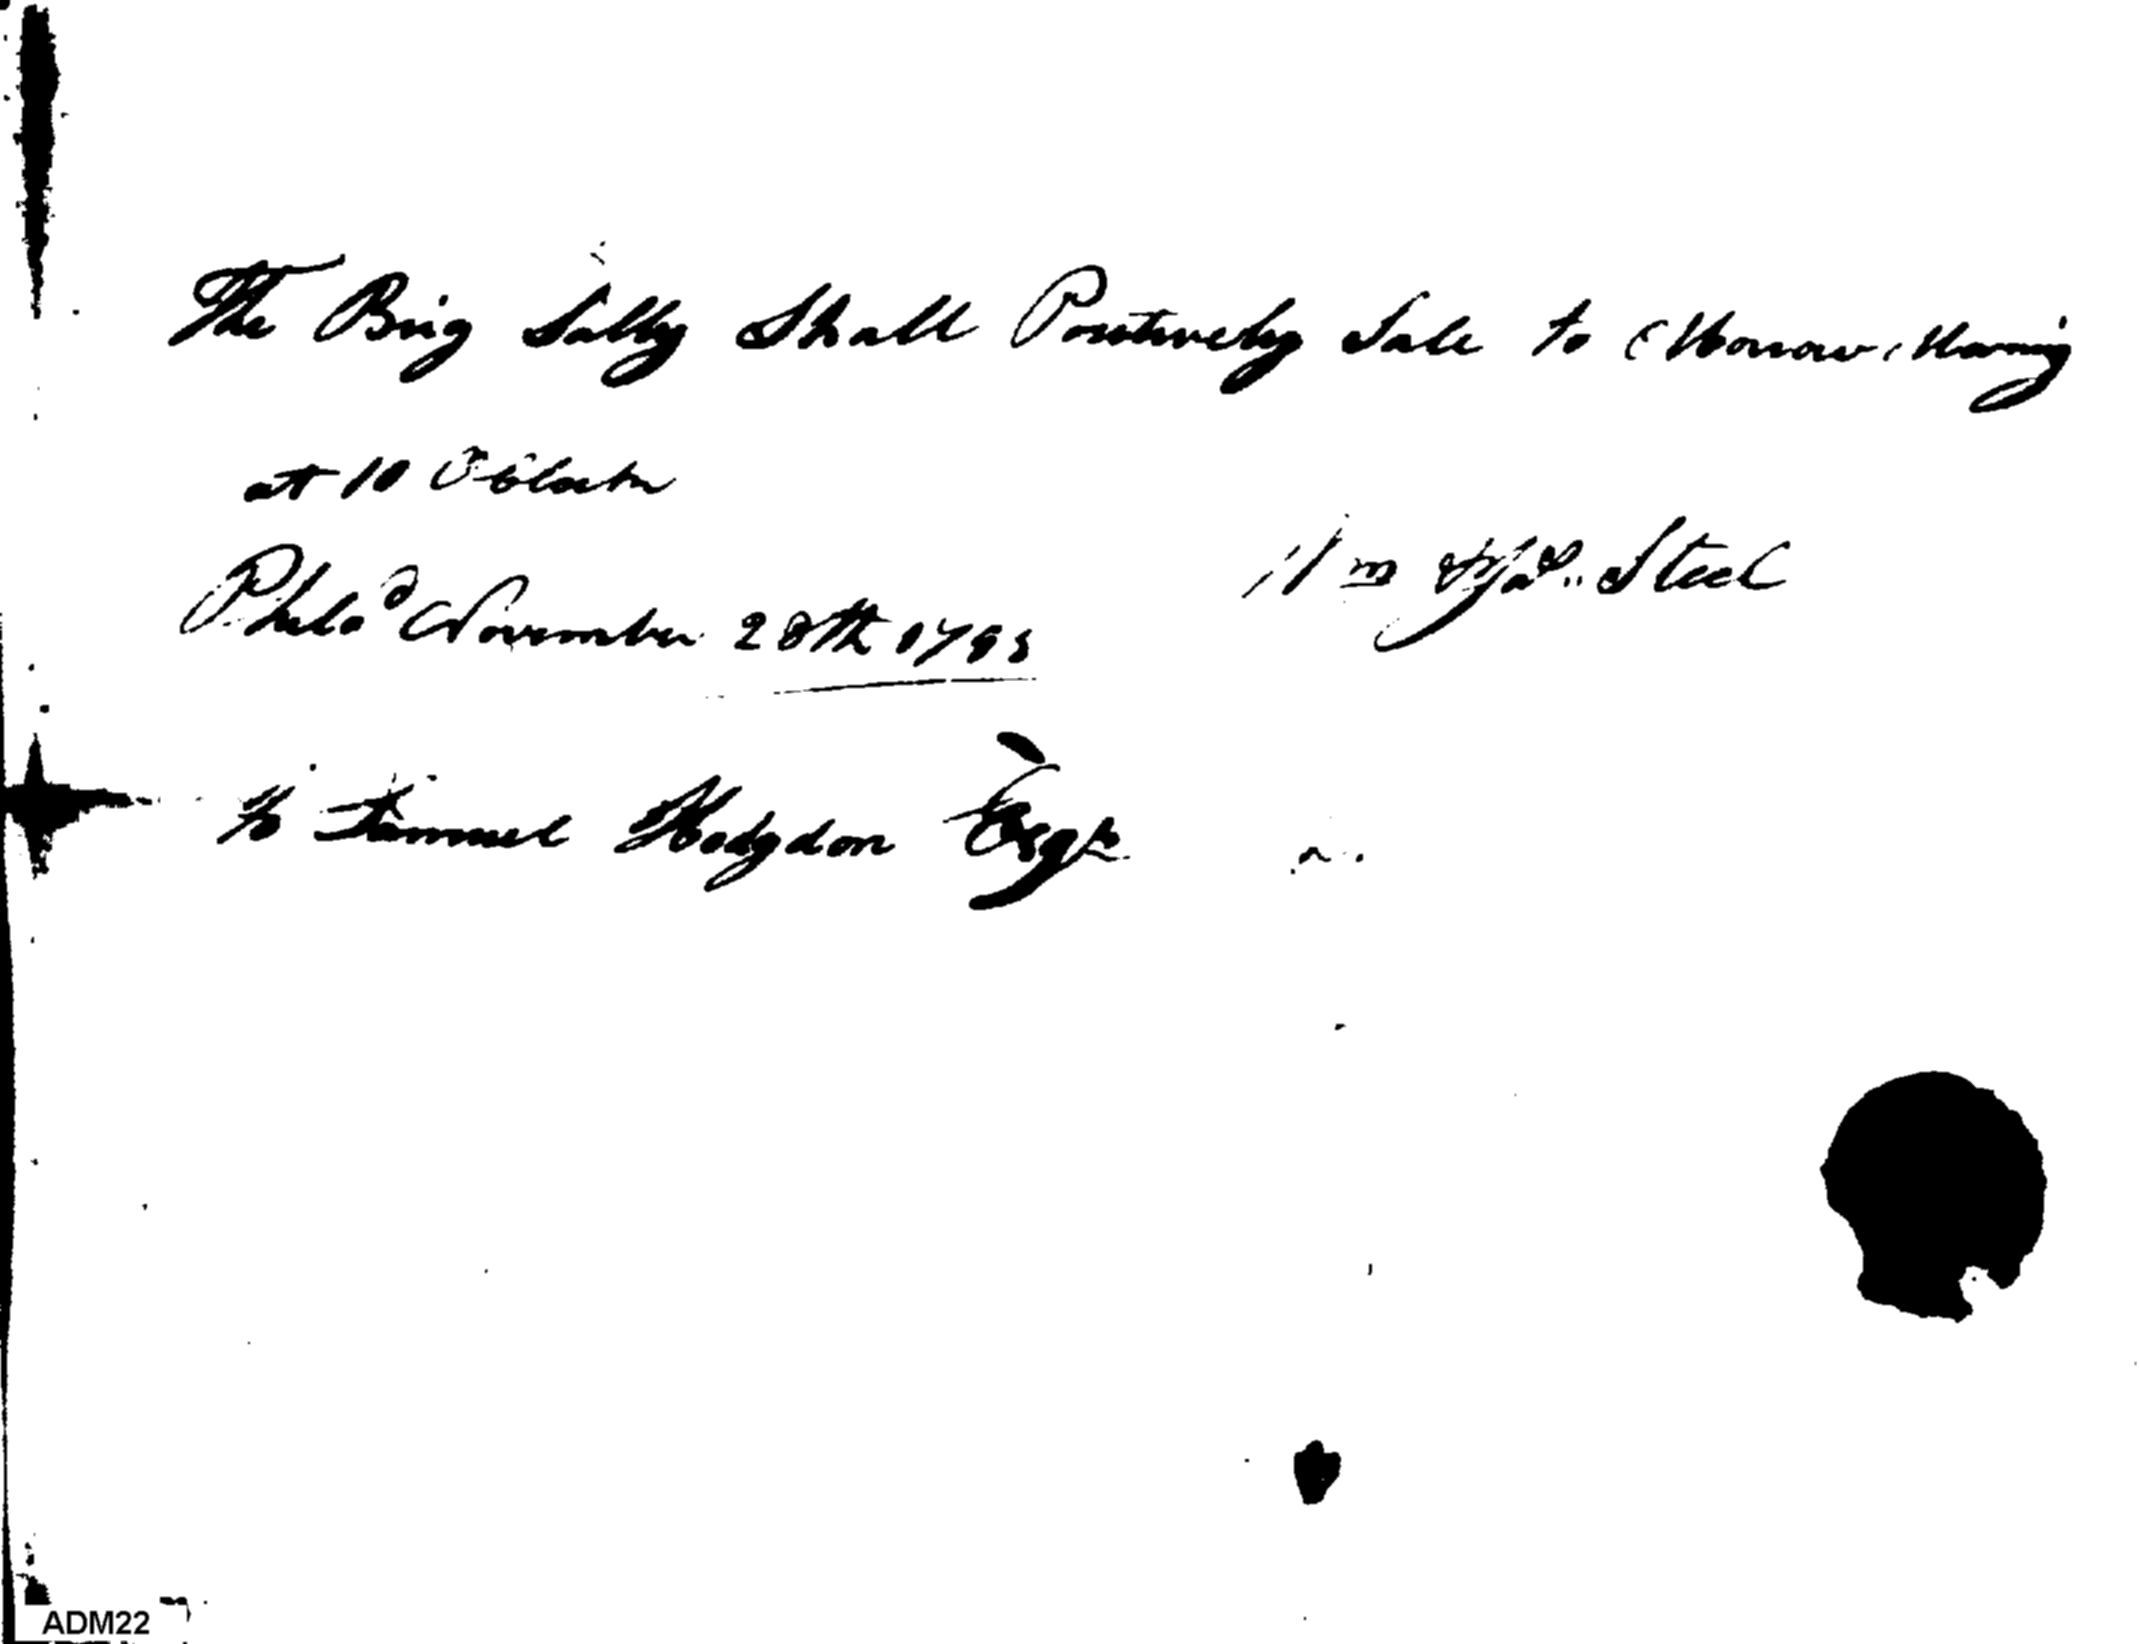 The Brig Sally Shall Positively Sale to Morrow Morning
at 10 OClock
Wm Steel
Philad November 28th 1795
To Samuel Hodgdon Esqr
ADM22